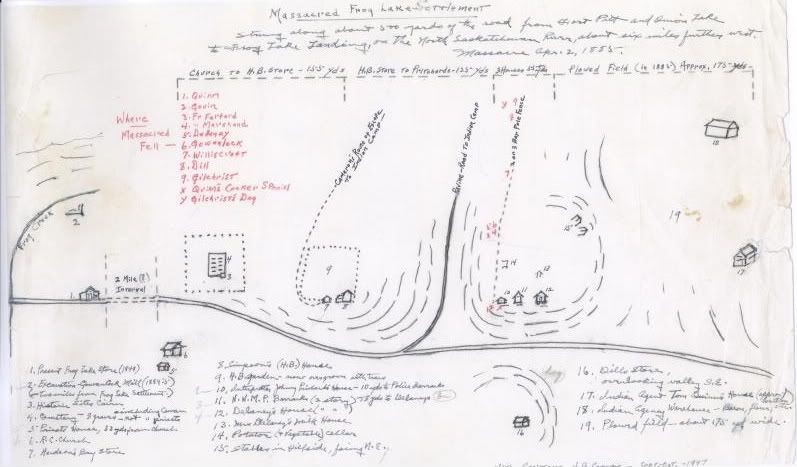 Massacred Frog Lake Settlement
Strung along about 500 yards of the road from Fort Pitt and Onion Lake
to Frog Lake Landing, on the North Saskatchewan River, about six miles further west.
Massacre Apr. 2, 1885.
Church to H.B. Store - 155 yds
H.B. Store to Pritchards - 125 yds
3 Houses 55 yds
Plowed Field (in 1885) Approx. 175 yds
Where
Massacred
Fell
1. Quinn
2. Gouin
3. Fr Fafard
4. " Marchand
5. Delaney
6. Gowanlock
7. Williscroft
8. Dill
9. Gilchrist
x Quinn's Cocker Spaniel
y Gilchrist's Dog
Cameron's Route of Escape
to Indian Camp
Road to Indian Camp
2 or 3 Bar Pole Fence
Frog Creek
2 Mile (?)
Interval
1. Present Frog Lake Store (1947)
2. Excavation Gowanlock Mill (1884-5)
2 miles from Frog Lake Settlement
3. Historic Sites Cairn
4. Cemetery - 8 graves - not priests
5. Private House, yds from church
6. R.C. Church
7. Hudson's Bay Store
8. Simpson's (H.B.) House
9. H.B. garden - now overgrown with trees
10. Interpreter John Pritchard's House - 10 yds to Police barracks
11. N.W.M.P. Barracks (2 story) to Delaneys
12. Delaney's House
13. New Delaney's House
14. Potatoe (& Vegetable) cellar
15. Stables in Hillside, facing N.E.
16. Dill's Store,
overlooking valley S.E.
17. Indian Agent Tom Quinn's House
18. Indian Agency Warehouse
19. Plowed field - about 175 yds wide.
1947